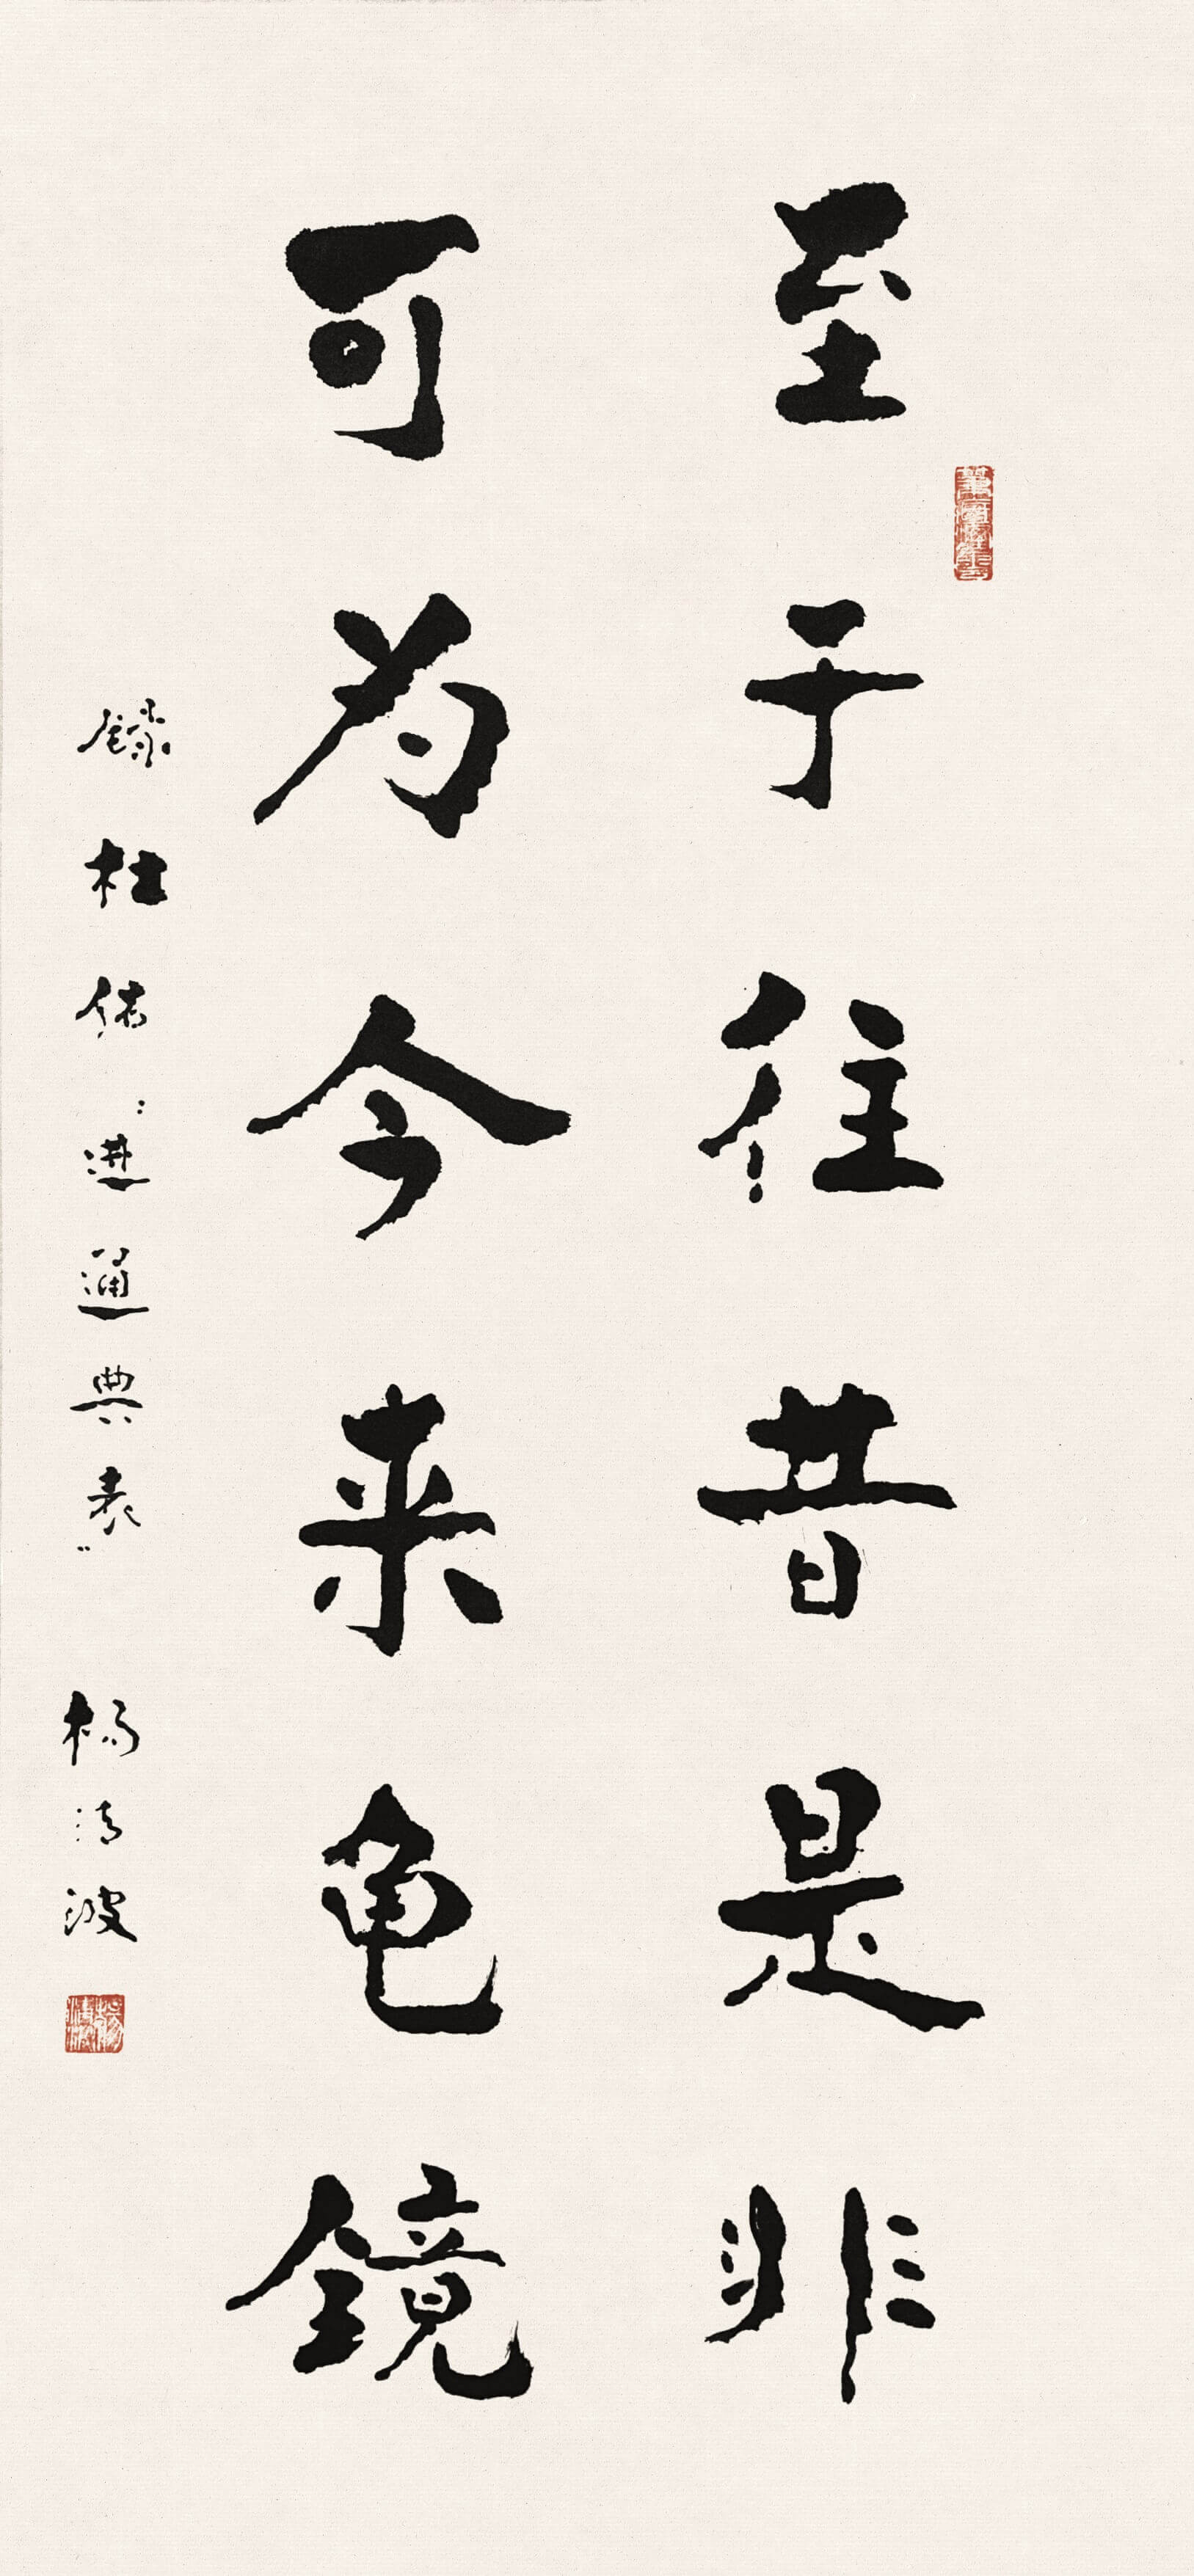 至于往昔是非
可为今来龟镜
录杜佑：进通典表”
杨清波